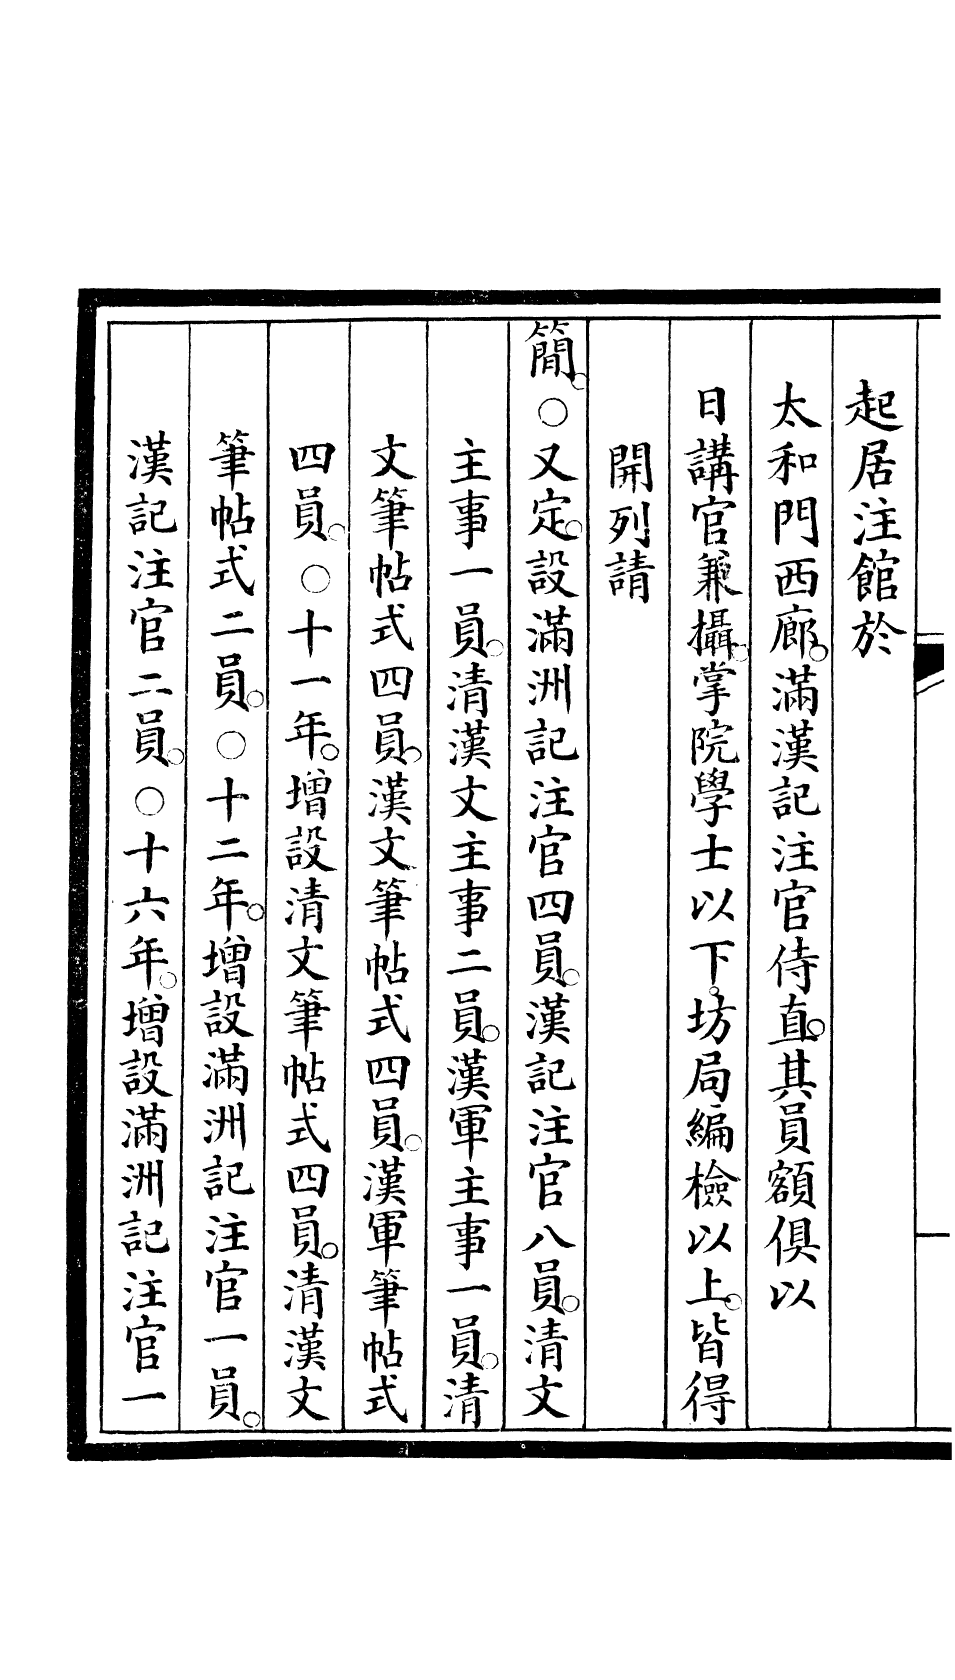 起居注館於
太和門西廊。滿漢記注官侍直。其員額俱以
日講官兼攝。掌院學士以下。坊局編檢以上。皆得
開列請
簡。○又定。設滿洲記注官四員。漢記注官八員。清文
主事一員。清漢文主事二員。漢軍主事一員。清
文筆帖式四員。漢文筆帖式四員。漢軍筆帖式
四員。○十一年。增設清文筆帖式四員。清漢文
筆帖式二員。○十二年。增設滿洲記注官一員。
漢記注官二員。○十六年。增設滿洲記注官一